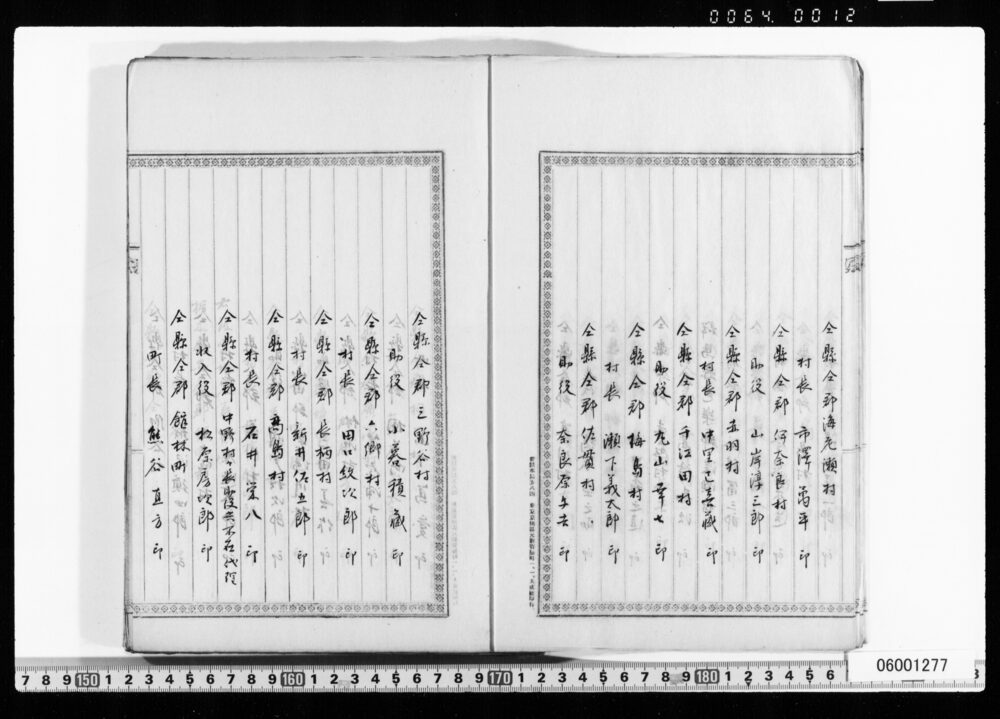 0064. 0012
仝縣仝郡海老瀬村
村長 市澤萬平 印
仝縣仝郡伊奈良村
助役 山岸淳三郎 印
仝縣仝郡赤羽村
村長 中里己喜藏 印
仝縣仝郡千江田村
助役 丸山幸七 印
仝縣仝郡梅島村
村長 瀬下義太郎 印
仝縣仝郡佐貫村
助役 奈良原 印
仝縣仝郡三野谷村
助役 小暮積藏 印
仝縣仝郡六郷村
村長 田口紋次郎 印
仝縣仝郡長柄村
村長 新井佐五郎 印
仝縣仝郡高島村
村長 石井栄八 印
仝縣仝郡中野村長役共不在代理
收入役 松原房次郎 印
仝縣仝郡館林町
町長 熊谷直方 印
7 8 9 150 1 2 3 4 5 6 7 8 9 160 1 2 3 4 5 6 7 8 9 170 1 2 3 4 5 6 7 8 9 180 1 2 3 4 5 6
06001277